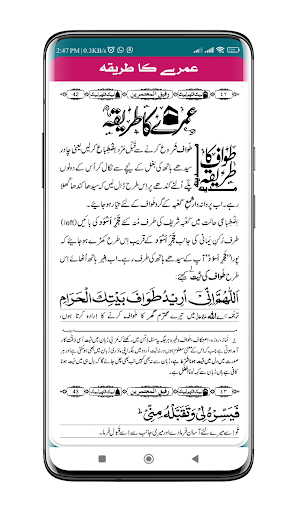 2:47 PM | 0.3KB/s
عمرے کا طریقہ
42 رفیق المعتمرین ٤٢
عمرے کا طریقہ
طواف کا طریقہ
طواف شروع کرنے سے قبل مرد اضطباع کرلیں یعنی چادر
سیدھے ہاتھ کی بغل کے نیچے سے نکال کر اُس کے دونوں
پلے اُلٹے کندھے پر اس طرح ڈال لیں کہ سیدھا کندھا کھلا
رہے۔ اب پروانہ وار شمع کعبہ کے گرد طواف کے لئے تیار ہوجائیے۔
اضطباعی حالت میں کعبہ شریف کی طرف منہ کئے حجر اسود کی بائیں (left)
طرف رکن یمانی کی جانب حجر اسود کے قریب اس طرح کھڑے ہوجائیے کہ
پورا "حجر اسود" آپ کے سیدھے ہاتھ کی طرف رہے۔ اب بغیر ہاتھ اُٹھائے اس
طرح طواف کی نیت کیجئے:
اَللّٰهُمَّ اِنِّیْ اُرِیْدُ طَوَافَ بَیْتِكَ الْحَرَامِ
ترجمہ: اے اللہ عزوجل میں تیرے محترم گھر کا طواف کرنے کا ارادہ کرتا ہوں
43 رفیق المعتمرین
فَیَسِّرْهُ لِیْ وَتَقَبَّلْهُ مِنِّیْ ؕ
تو اسے میرے لئے آسان فرما دے اور میری جانب سے اسے قبول فرما۔